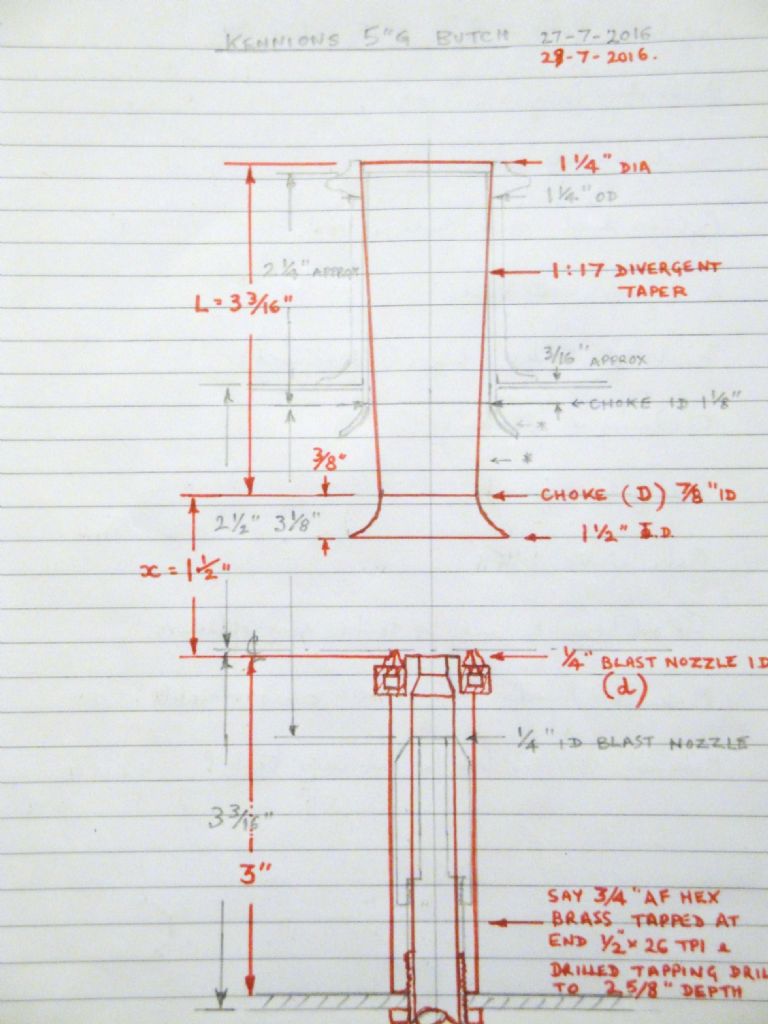 KENNIONS 5"G BUTCH 27-7-2016
28-7-2016.
1 1/4" DIA
1 1/4" OD
2 1/4" APPROX
1:17 DIVERGENT
TAPER
L = 3 3/16"
3/16" APPROX
← CHOKE ID 1 1/8"
← *
← *
3/8"
CHOKE (D) 7/8" ID
2 1/2" 3 1/8"
1 1/2" I.D.
x = 1 1/2"
1/4" BLAST NOZZLE ID
(d)
1/4" ID BLAST NOZZLE
3 3/16"
3"
SAY 3/4" AF HEX
BRASS TAPPED AT
END 1/2" x 26 TPI &
DRILLED TAPPING DRIL
TO 2 5/8" DEPTH